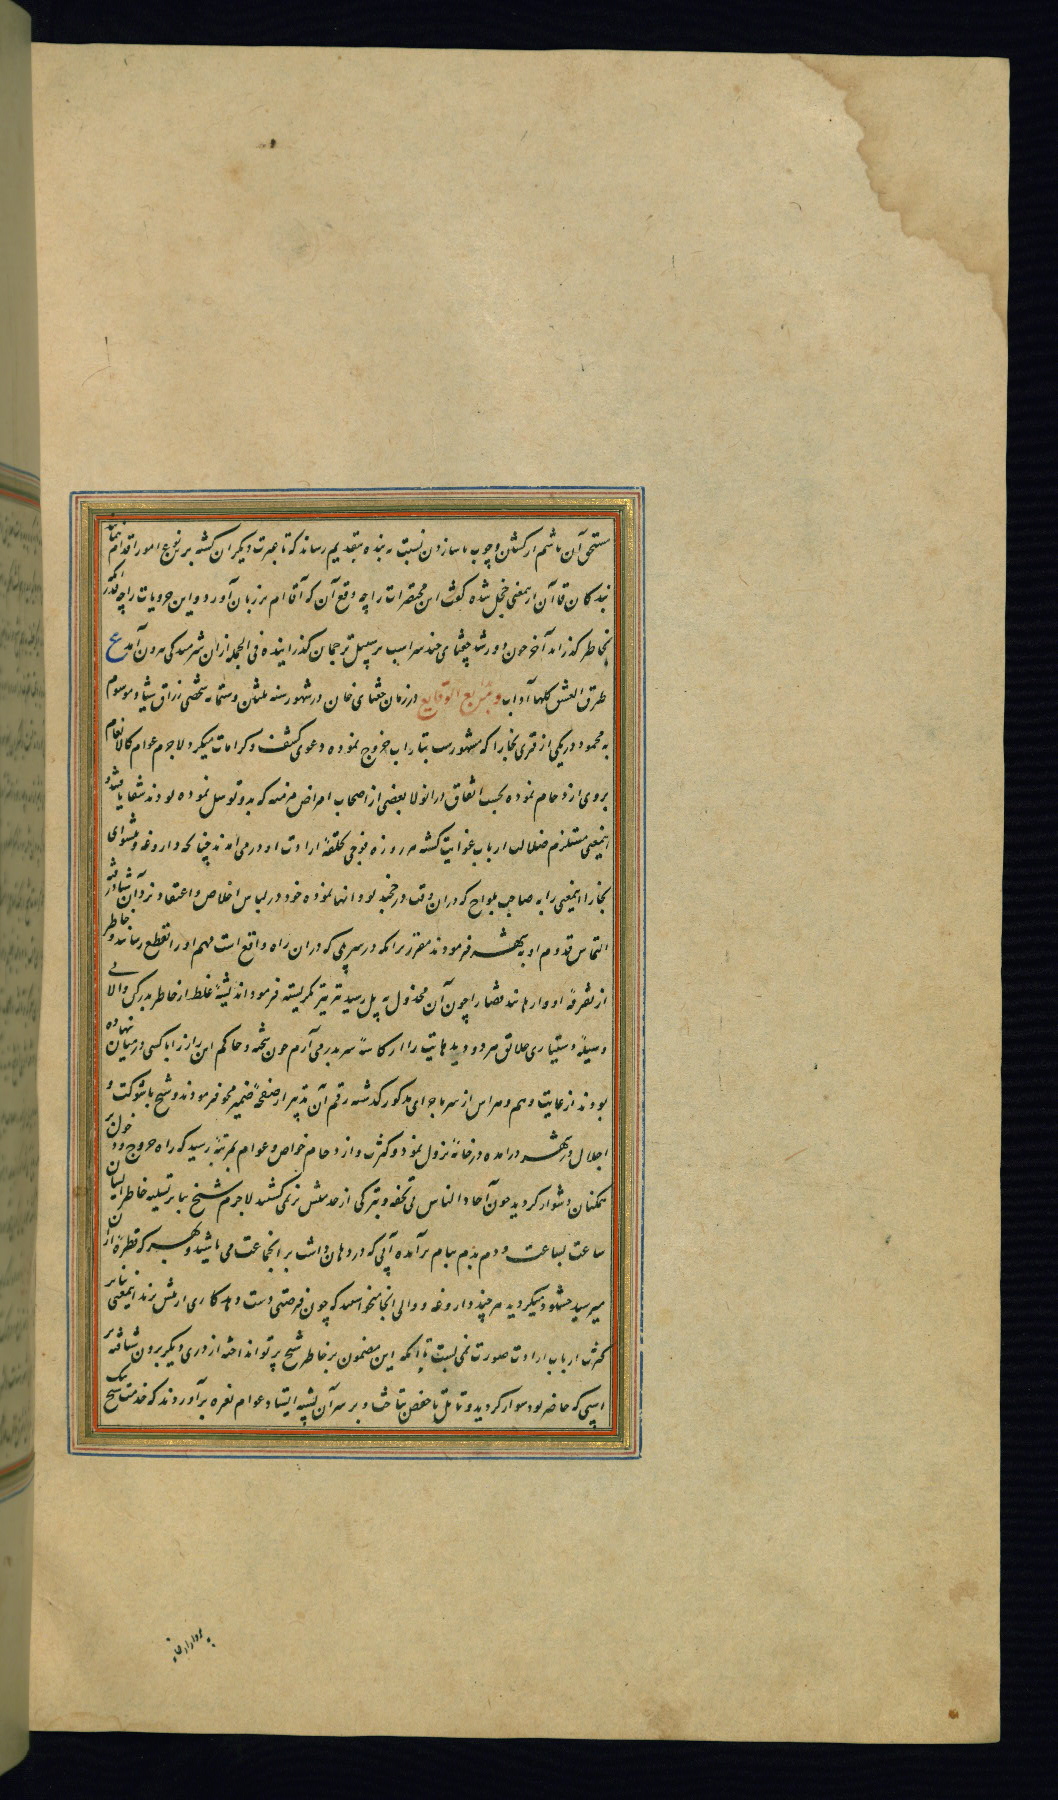 مستحق آن باشم از کشتن و چوب یاسا زدن نسبت به بنده بتقدیم رساند که تا عبرت دیگران کشته بر نوع امور اقدام ننمایند
بندکان قاآن ازینمعنی خجل شده کفت این محتقرات را چه وقع آن که آقا ام بر زبان آورد و این جزویات را چه قدر
بخاطر گذراند آخر چون دو رشا چغتای چند سر اسب بر سبیل ترجمان گذرانیده فی الجمله از آن شرمندکی بیرون آمد ع
طرق العشق کلها آداب و من بدایع الوقایع در زمان چغتای خان در شهور سنه ثلثین و ستمائه شخصی زراق شیاد موسوم
به محمود در یکی از قری بخارا که مشهورست بتاراب خروج نموده دعوی کشف و کرامات میکرد لاجرم عوام کالانعام
بروی ازدحام نموده بحسب اتفاق در آنولا بعضی از اصحاب امراض مزمنه که بدو توسل نموده بودند شفا یافتند و
اینمعنی مستلزم ضلالت ارباب غوایت کشته هر روزه فوجی بحلقهٔ ارادت او در می آمدند چنانکه داروغه و پیشوای
بخارا اینمعنی را به صاحب یلواج که در آن وقت در خجند بود انها نموده خود در لباس اخلاص و اعتقاد نزد آن شیاد رفته
التماس قدوم او به شهر فرمودند مقرر برانکه در سر پلی که در آن راه واقع است مهم او را بقطع رسانند و خاطر
از تفرقهٔ او وارهانند قضا را چون آن مخذول به پل رسید تیز تیز نکریسته فرمود اندیشهٔ غلط از خاطر بدر کن والا بی
وسیلهٔ دستیاری خلایق هر دو دیدهایت را از کاسهٔ سر بدر می آرم چون شحنه و حاکم این راز را با کسی در میان ننهاده
بودند از غایت وهم و هراس از سر ماجرای مذکور کذشته رقم آن تدبیر از صفحهٔ ضمیر محو فرمودند و شیخ با شوکت و
اجلال در شهر درآمده در خانهٔ نزول نمود و کثرت و ازدحام خواص و عوام بمرتبهٔ رسید که راه خروج و دخول بر
متمکنان دشوار کردید چون آحاد الناس بی تحفه و تبرکی از خدمتش بر نمی کشتند لاجرم شیخ بنا بر تسلیه خاطر ایشان
ساعت بساعت و دم بدم ببام برآمده آبی که در دهان داشت بر آنجماعت می پاشید و بهر که قطرهٔ از آن
میرسید خشنود میکردید هر چند داروغه و والی آنجا میخواستند که چون فرصتی دست دهد کاری از پیش برند اینمعنی بنابر
کثرت ارباب ارادت صورت نمی بست تا آنکه این مضمون بر خاطر شیخ پرتو انداخته از دری دیکر برون شتافته بر
اسبی که حاضر بود سوار کردید و تا تل باحفص بتاخت و بر سر آن پشته ایستاد عوام نعره برآوردند که خدمت شیخ بیک
پرواز از خانه